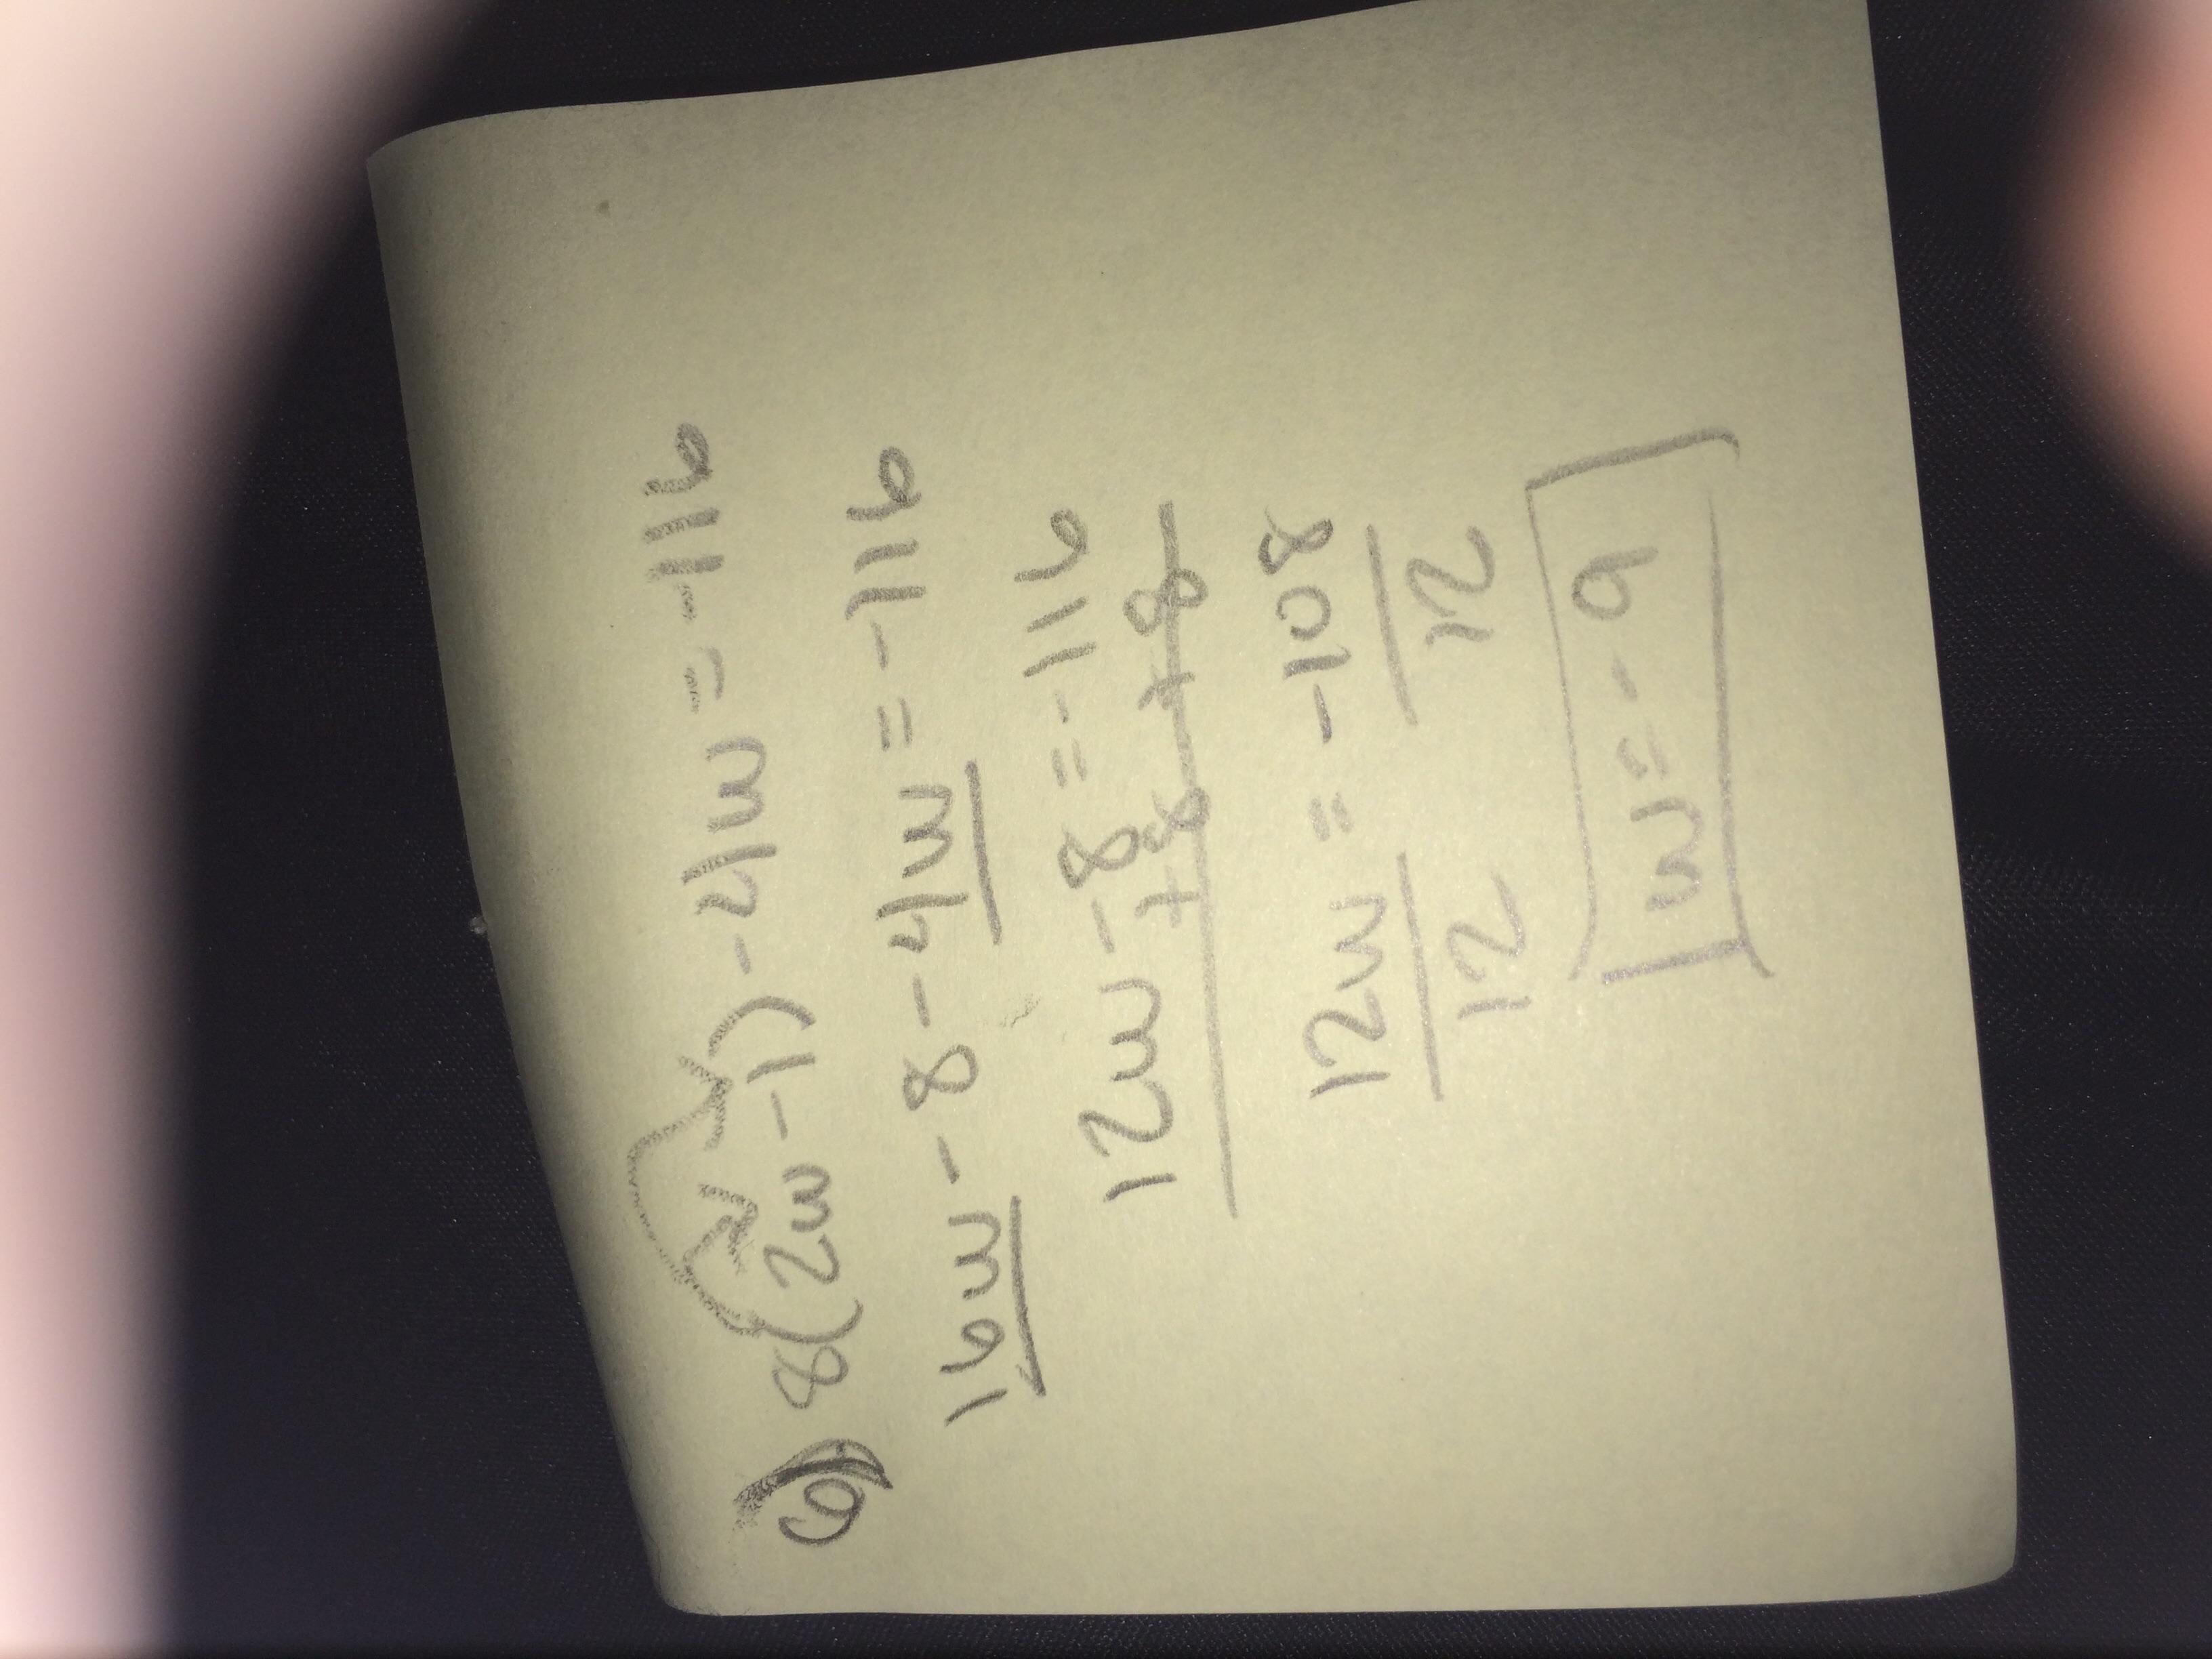 6) 8(2w-1)-4w=-116
16w-8-4w=-116
12w-8=-116
+8 +8
12w = -108
12 12
w=-9